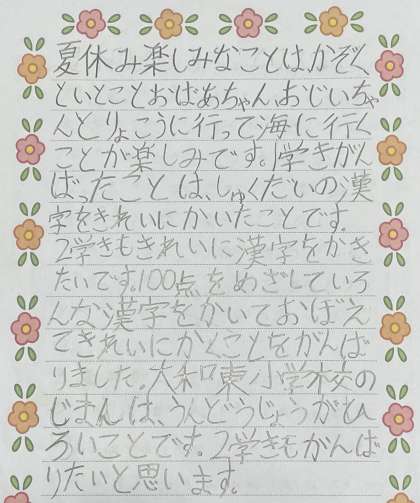 夏休み楽しみなことは、かぞく
といとことおばあちゃん、おじいちゃ
んとりょこうに行って海に行く
ことが楽しみです。1学きがん
ばったことは、しゅくだいの漢
字をきれいにかいたことです。
2学きもきれいに漢字をかき
たいです。100点をめざしていろ
んな漢字をかいておぼえ
てきれいにかくことをがんば
りました。大和東小学校の
じまんは、うんどうじょうがひ
ろいことです。2学きもがんば
りたいと思います。